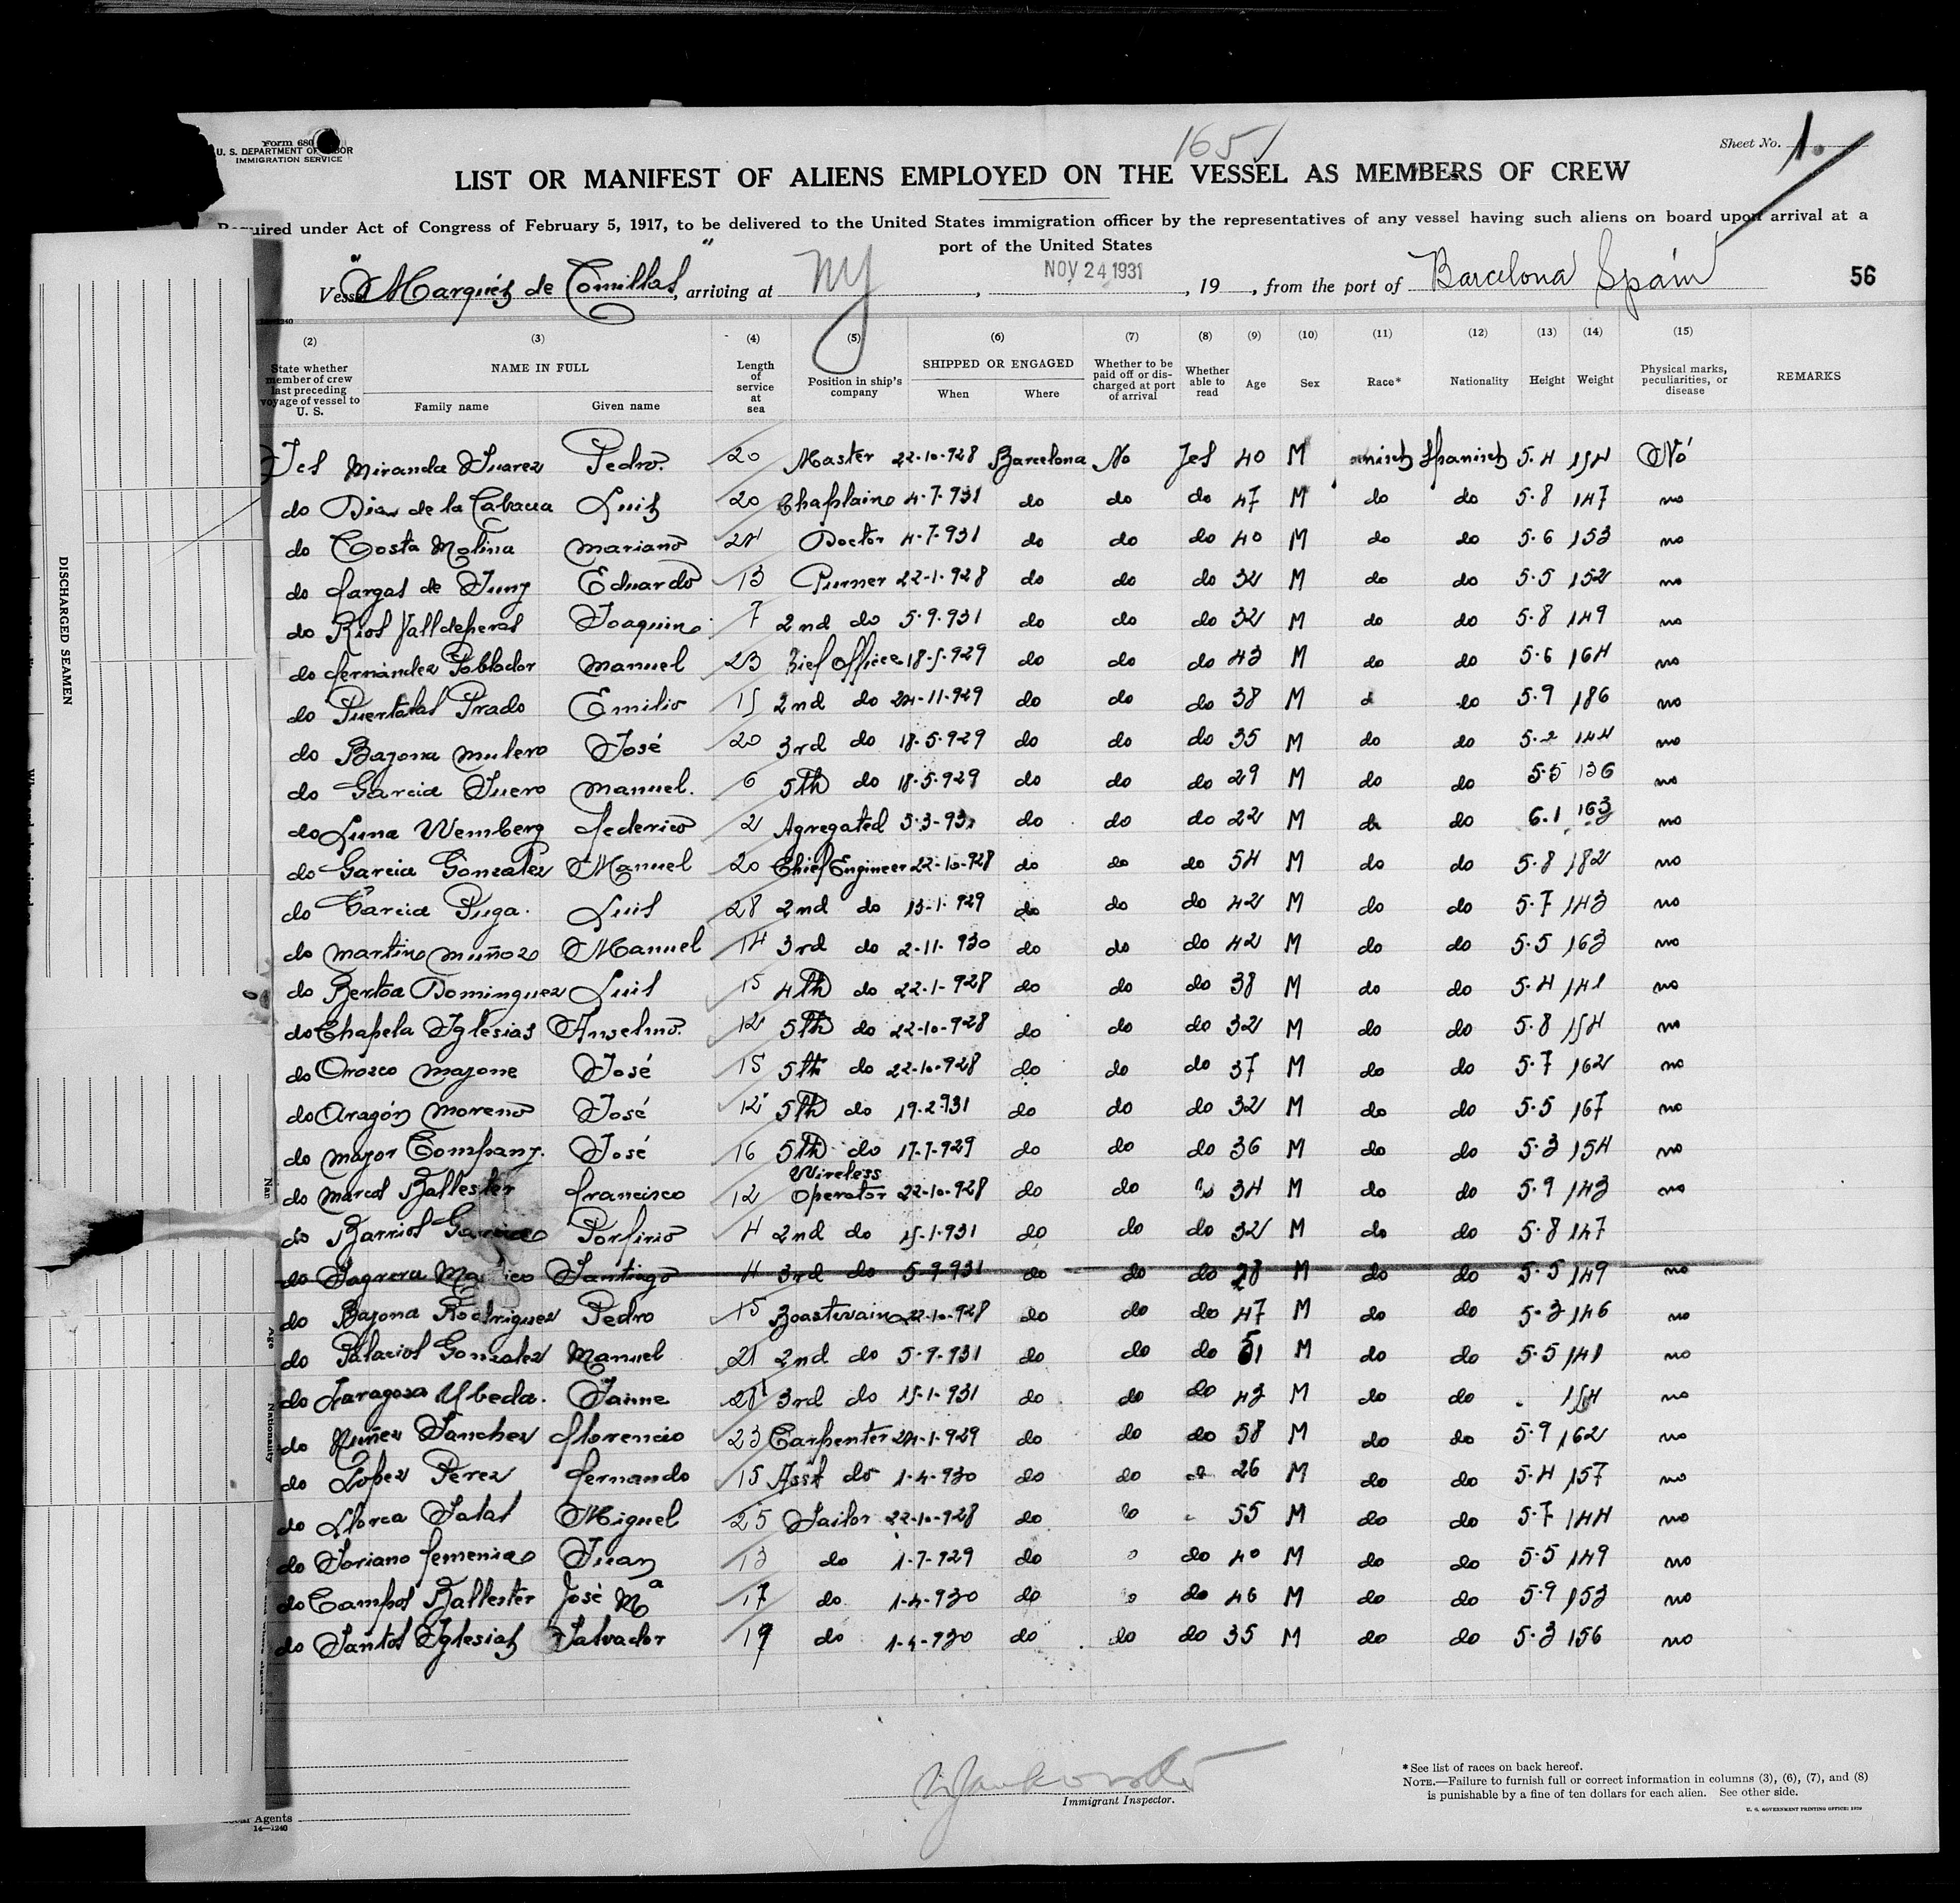 1651
Form 680
U. S. DEPARTMENT OF LABOR
IMMIGRATION SERVICE
Sheet No. 1.
LIST OR MANIFEST OF ALIENS EMPLOYED ON THE VESSEL AS MEMBERS OF CREW
Required under Act of Congress of February 5, 1917, to be delivered to the United States immigration officer by the representatives of any vessel having such aliens on board upon arrival at a
port of the United States
Vessel "Marqués de Comillas", arriving at NY, NOV 24 1931, 19 , from the port of Barcelona Spain 56
(2) (3) (4) (5) (6) (7) (8) (9) (10) (11) (12) (13) (14) (15)
State whether member of crew last preceding voyage of vessel to U. S. NAME IN FULL Family name Given name Length of service at sea Position in ship's company SHIPPED OR ENGAGED When Where Whether to be paid off or discharged at port of arrival Whether able to read Age Sex Race* Nationality Height Weight Physical marks, peculiarities, or disease REMARKS
Jes Miranda Suarez Pedro. 20 Master 22-10-928 Barcelona No Jes 40 M Spanisch 5.4 154 No
do Dias de la Luis 20 Chaplain 4-7-931 do do do 47 M do do 5.8 147 no
do Costa Molina Mariano 24 Doctor 4-7-931 do do do 40 M do do 5.6 153 no
do fargas de Juny Eduardo 13 Purner 22-1-928 do do do 32 M do do 5.5 152 no
do Rios Valldeperas Joaquin 7 2nd do 5-9-931 do do do 32 M do do 5.8 149 no
do fernandez Poblador Manuel 23 officer 18-5-929 do do do 43 M do do 5.6 164 no
do Prado Emilio 15 2nd do 24-11-929 do do do 38 M d do 5.9 186 no
do Bazona Mulero José 20 3rd do 18-5-929 do do do 35 M do do 5.2 144 no
do Garcia Suero Manuel. 6 5th do 18-5-929 do do do 29 M do do 5.5 136 no
do Luna Wemberg federico 2 Agregated 3-3-931 do do do 22 M do do 6.1 163 no
do Garcia Gonzalez Manuel 20 Chief Engineer 22-10-928 do do do 54 M do do 5.8 182 no
do Garcia Puga. Luis 28 2nd do 13-1-929 do do do 42 M do do 5.7 143 no
do Martin Muñoz Manuel 14 3rd do 2-11-930 do do do 42 M do do 5.5 163 no
do Bertoa Dominguez Luis 15 4th do 22-1-928 do do do 38 M do do 5.4 141 no
do Chapela Iglesias Anselmo. 12 5th do 22-10-928 do do do 32 M do do 5.8 154 no
do Orozco Mazone José 15 5th do 22-10-928 do do do 37 M do do 5.7 162 no
do Aragón Moreno José 12 5th do 19-2-931 do do do 32 M do do 5.5 167 no
do Mayor Company. José 16 5th do 17-7-929 do do do 36 M do do 5.3 154 no
do Marcos Ballester francisco 12 Wireless Operator 22-10-928 do do do 34 M do do 5.9 143 no
do Barrios Garcia Porfirio 4 2nd do 15-1-931 do do do 32 M do do 5.8 147
do Sagrera Santiago 4 3rd do 5-9-931 do do do 28 M do do 5.5 149 no
do Bazona Rodriguez Pedro 15 Boastwain 22-10-928 do do do 47 M do do 5.3 146 no
do Palacios Gonzalez Manuel 21 2nd do 5-9-931 do do do 51 M do do 5.5 141 no
do Zaragoza Ubeda. Jaime 21 3rd do 15-1-931 do do do 43 M do do 154 no
do Nuñez Sanchez florencio 23 Carpenter 24-1-929 do do do 58 M do do 5.9 162 no
do Lopez Perez fernando 15 Asst do 1-4-930 do do 26 M do do 5.4 157 no
do Llorca Salas Miguel 25 Sailor 22-10-928 do 55 M do do 5.7 144 no
do Soriano femenia Juan 13 do 1-7-929 do do 40 M do do 5.5 149 no
do Campos Ballester José Mª 17 do 1-4-930 do do 46 M do do 5.9 153 no
do Santos Iglesias Salvador 19 do 1-4-930 do do do 35 M do do 5.3 156 no
DISCHARGED SEAMEN
Nationality
Immigrant Inspector.
*See list of races on back hereof.
NOTE.—Failure to furnish full or correct information in columns (3), (6), (7), and (8)
is punishable by a fine of ten dollars for each alien. See other side.
U. S. GOVERNMENT PRINTING OFFICE: 1929
Agents
14—1240